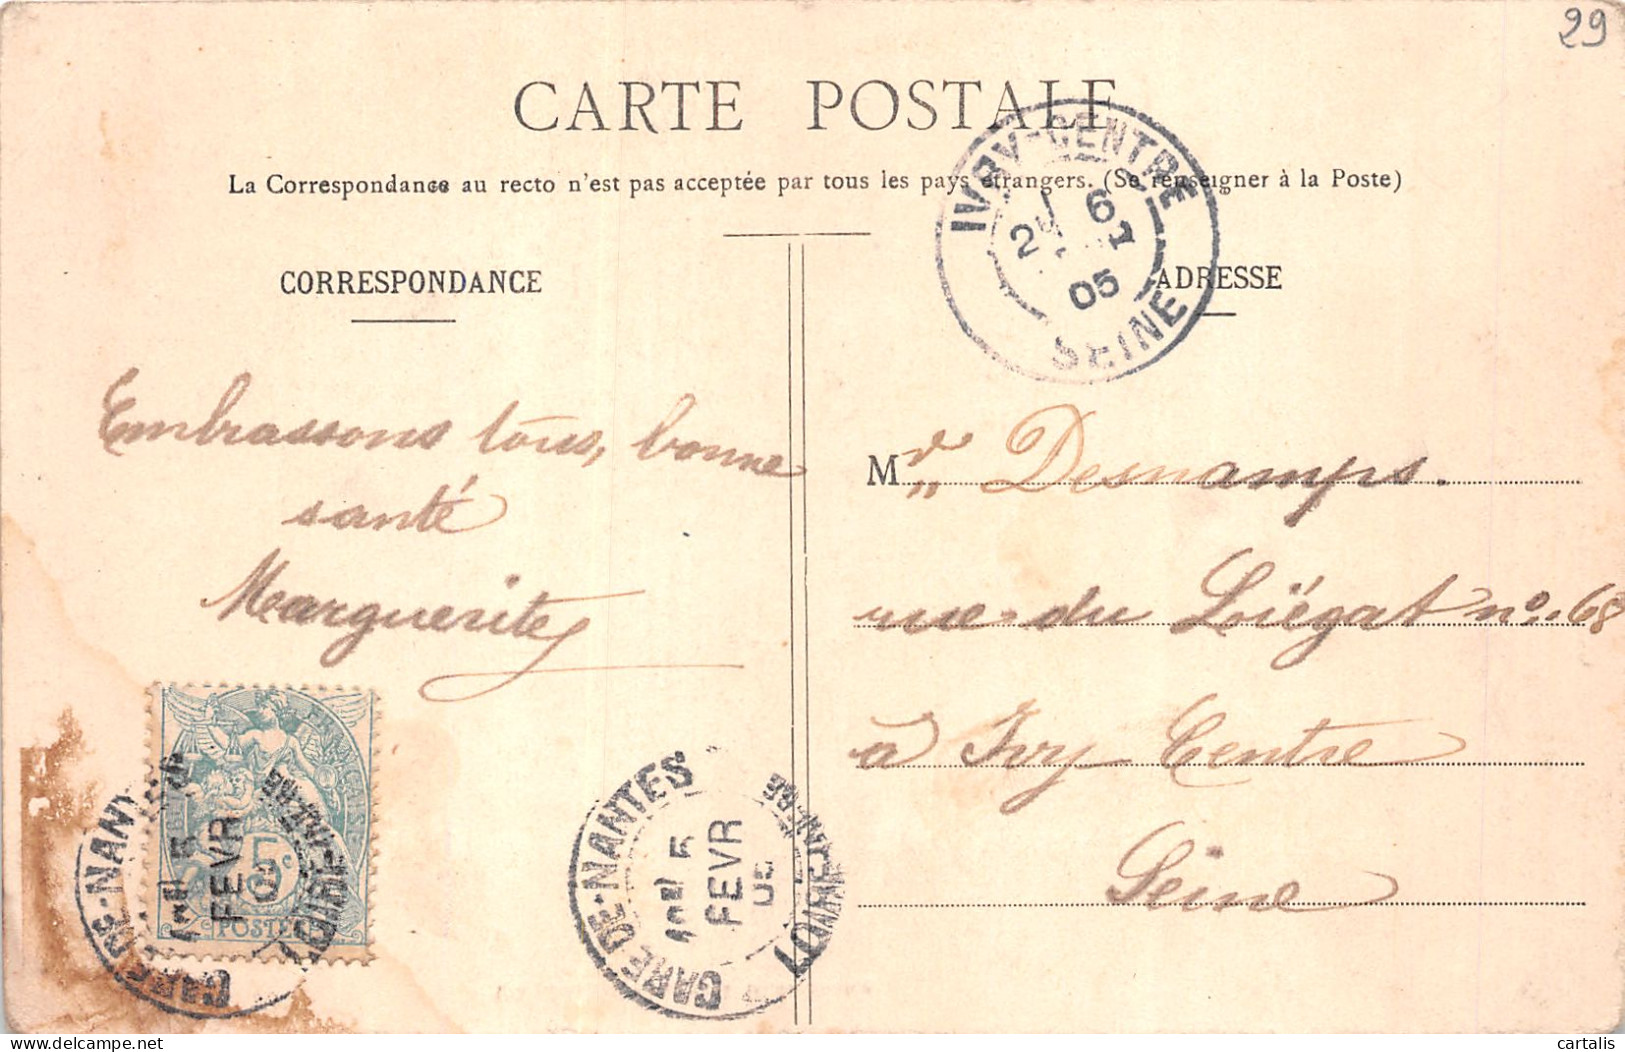 29
CARTE POSTALE
La Correspondance au recto n'est pas acceptée par tous les pays étrangers. (Se renseigner à la Poste)
CORRESPONDANCE
ADRESSE
IVRY-CENTRE
6
05
SEINE
Embrassons tous, bonne
santé
Marguerite
Mde Desnamps.
rue du Liégat no 68
à Ivry Centre
Seine
5c
POSTES
GARE DE NANTES
5
FEVR
05
LOIRE-INFRE
GARE-DE-NANTES
5
FEVR
05
cartalis